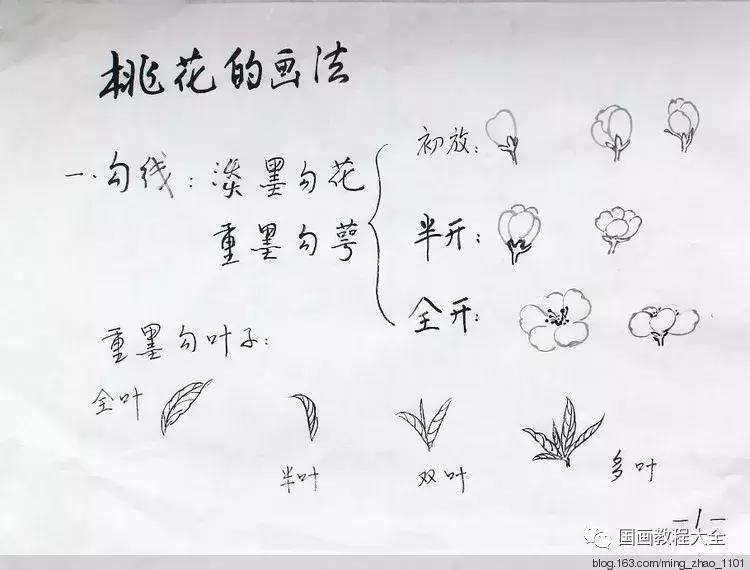 桃花的画法
一.勾线：淡墨勾花
重墨勾萼
初放：
半开：
全开：
重墨勾叶子：
全叶
半叶
双叶
多叶
-1-
国画教程大全
blog.163.com/ming_zhao_1101